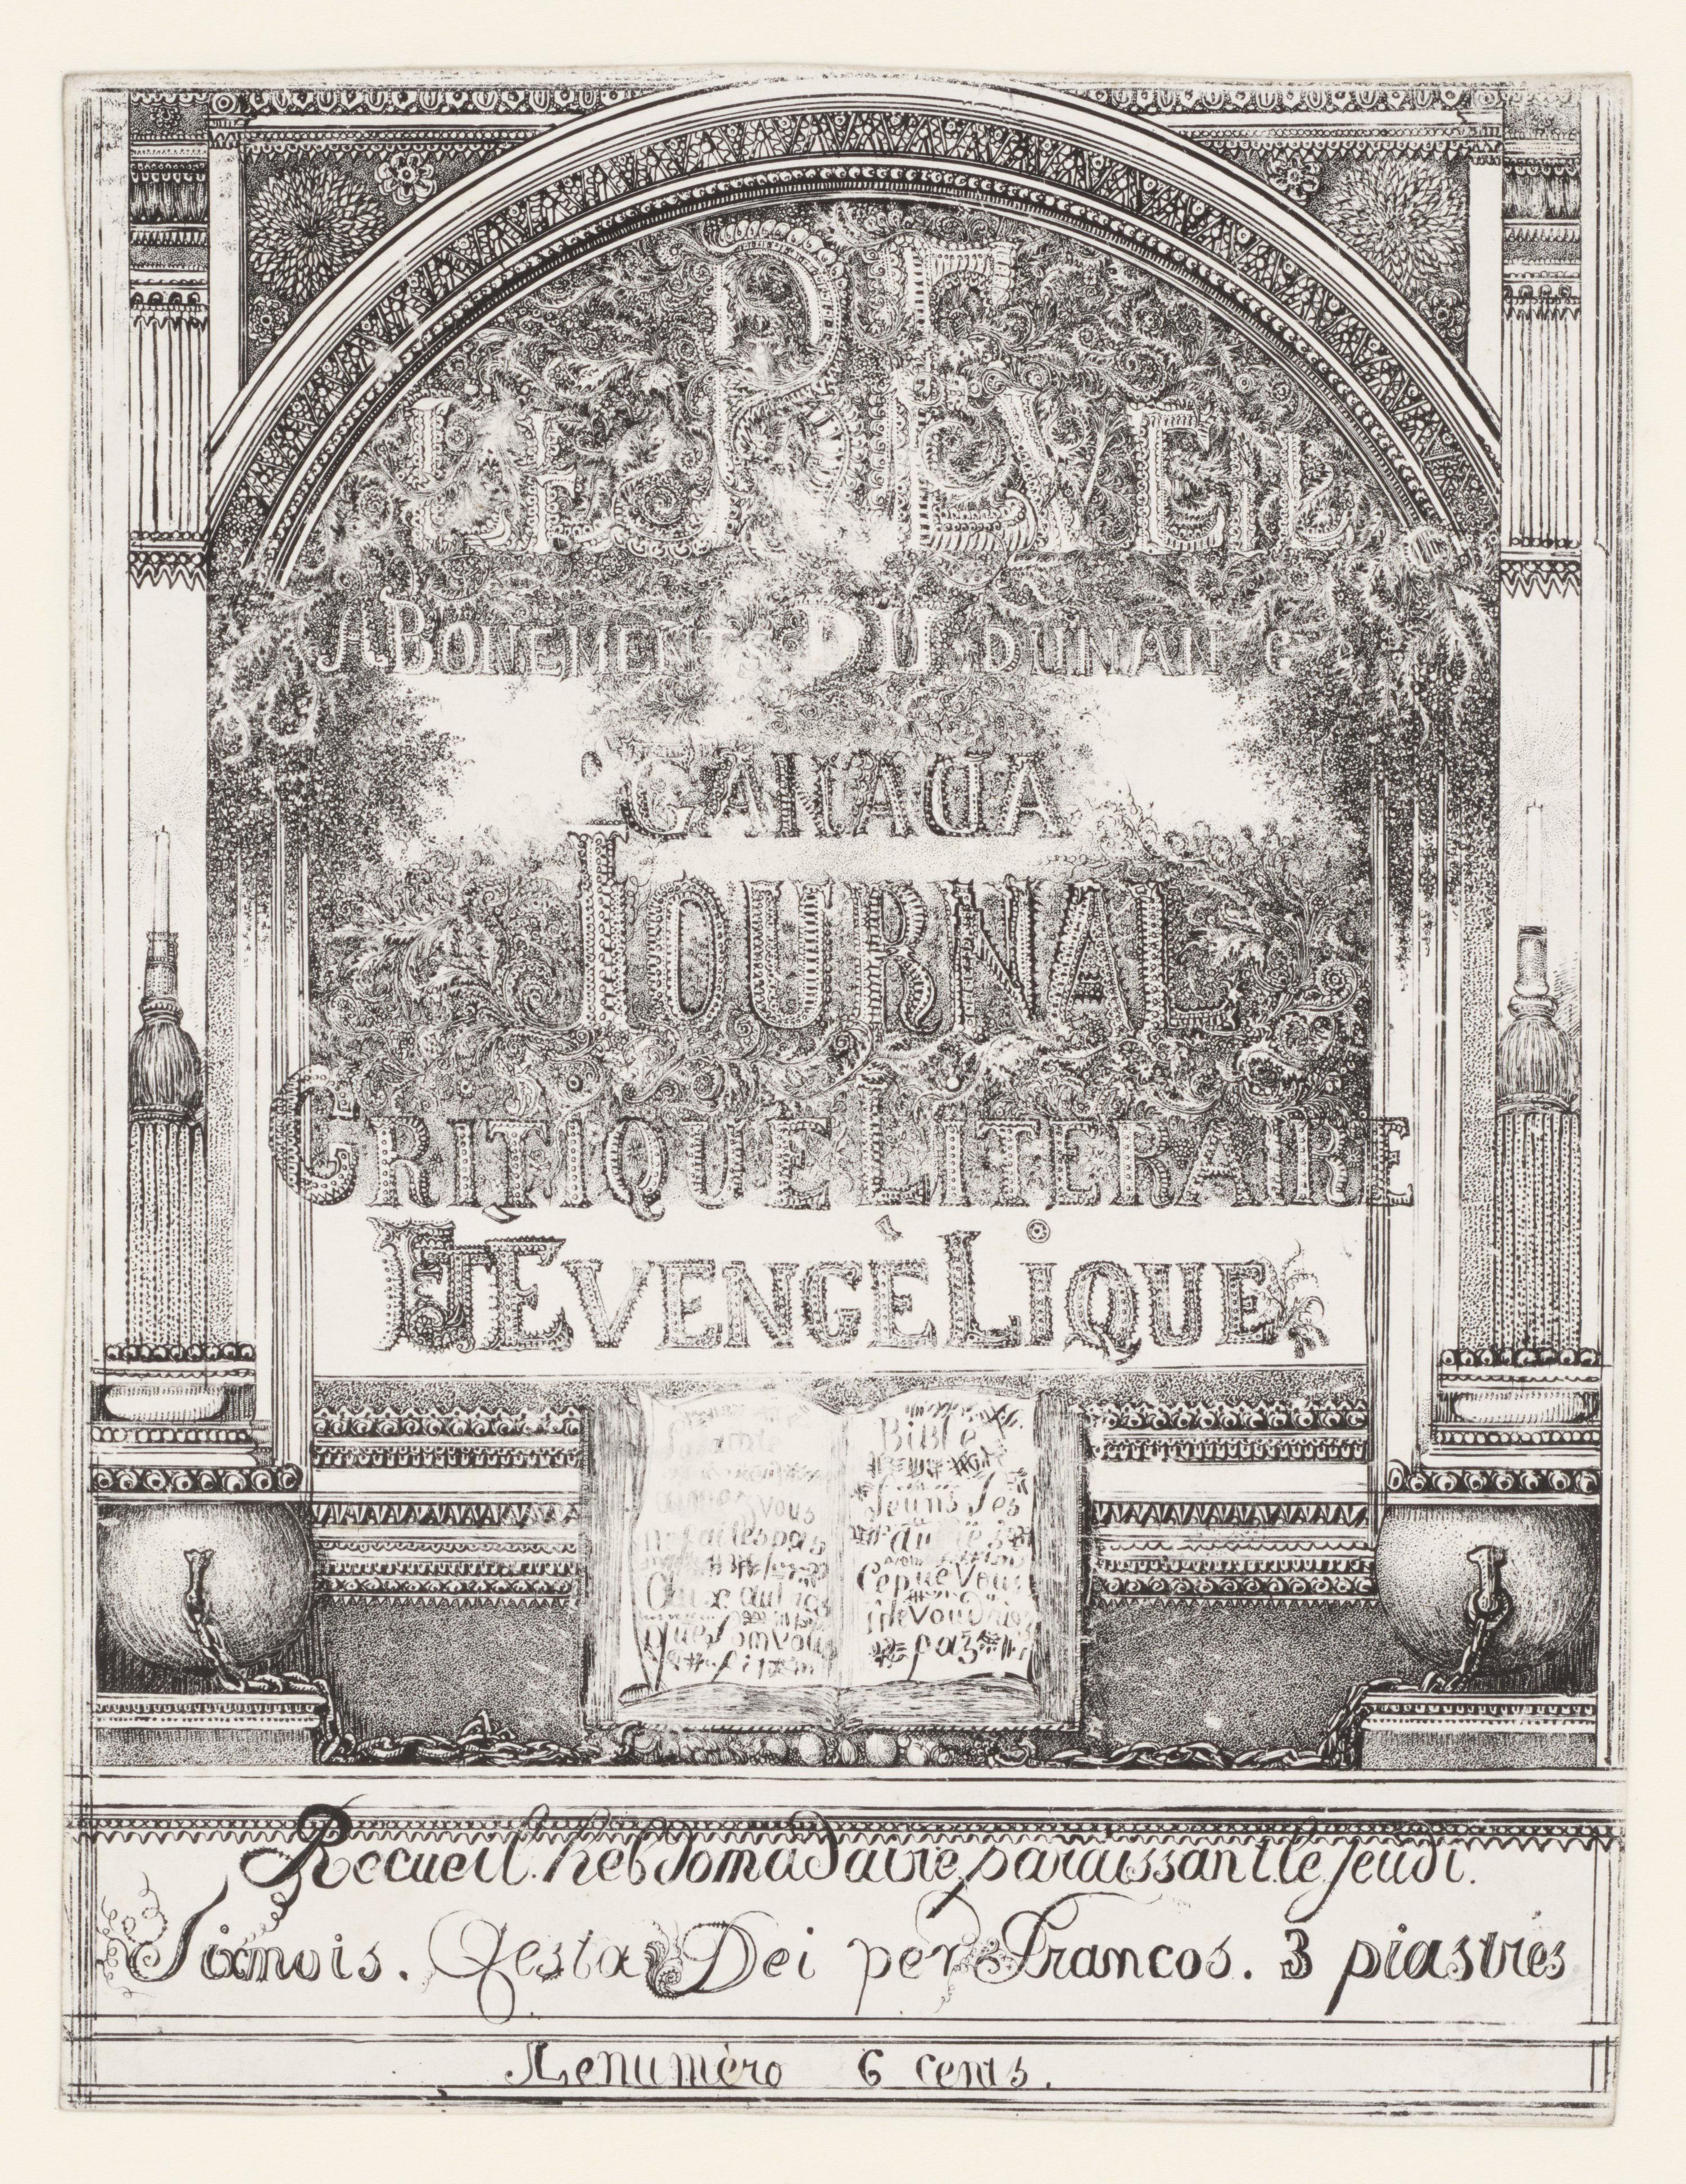 LE REVEIL
ABONEMENT DU DUNAN
CANADA
JOURNAL
CRITIQUE LITERAIRE
ET ÈVENGÈLIQUE
aimez vous
ne faites pas
Aux autres
que lom vous
Bible
Ceque Vous
paz
Recueil hebdomadaire paraissant le jeudi.
Sixmois. Gesta Dei per Francos. 3 piastres
Le numèro 6 cents.